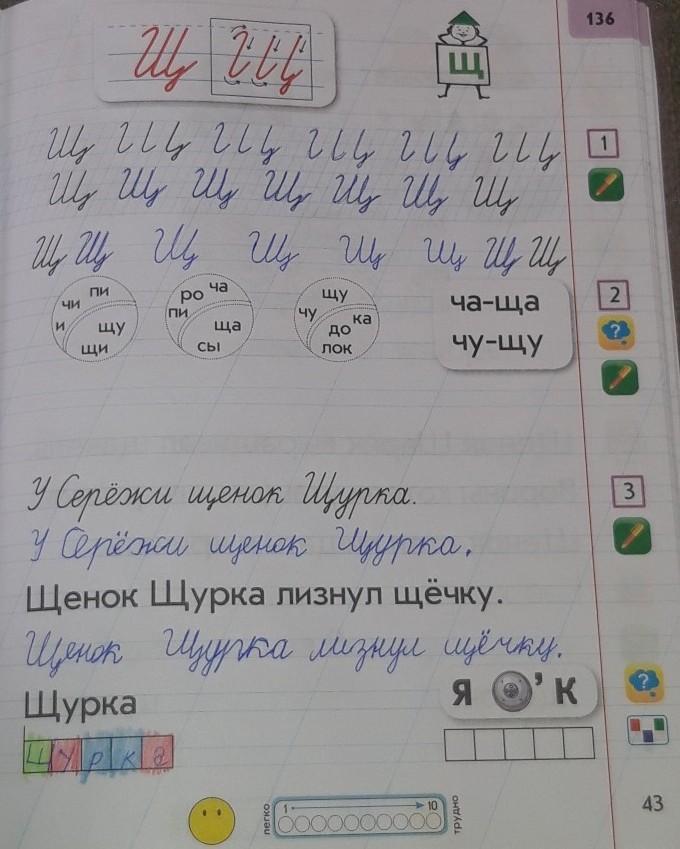 136
Щ Щ
Щ
Щ Щ Щ Щ Щ Щ 1
Щ Щ Щ Щ Щ Щ Щ
Щ Щ Щ Щ Щ Щ Щ Щ
чи пи и щу щи
ро ча пи ща сы
щу чу ка до лок
ча-ща
чу-щу
2
?
У Серёжи щенок Щурка.
3
У Серёжи щенок Щурка.
Щенок Щурка лизнул щёчку.
Щенок Щурка лизнул щёчку.
?
Щурка
Я ’ К
Щурка
легко 1 10 трудно
43